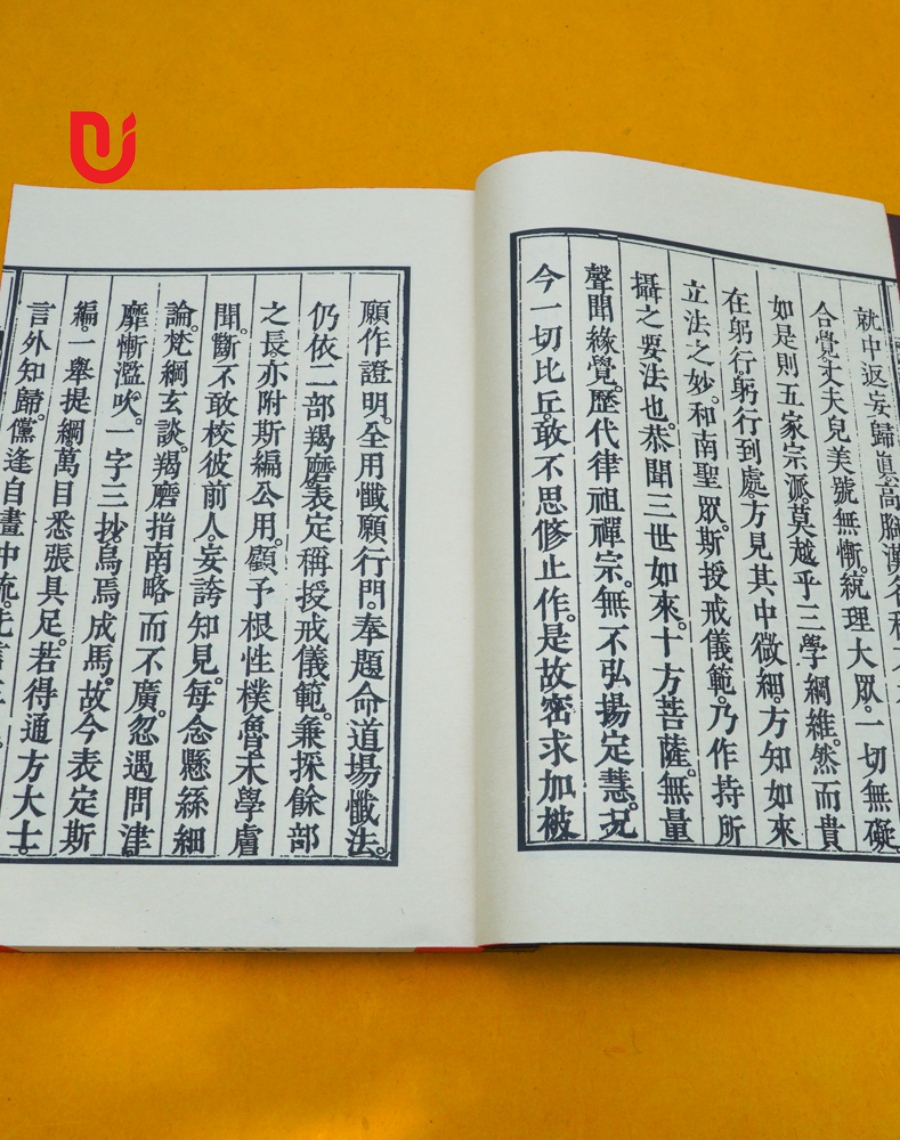 就中返妄歸眞高
合覺。丈夫兒美號無慚。統理大眾。一切無礙。
如是則五家宗派。莫越乎三學綱維。然而貴
在躬行。躬行到處。方見其中微細。方知如來
立法之妙。和南聖眾。斯授戒儀範。乃作持所
攝之要法也。恭聞三世如來。十方菩薩。無量
聲聞緣覺。歷代律祖禪宗。無不弘揚定慧。况
今一切比丘。敢不思修止作。是故密求加被
願作證明。全用懺願行門。奉題命道場懺法。
仍依二部羯磨。表定稱授戒儀範。兼採餘部
之長。亦附斯編公用。顧予根性樸魯。末學膚
聞。斷不敢校彼前人。妄誇知見。每念懸絲細
論。梵綱玄談。羯磨指南略而不廣。忽遇問津
靡慚濫吹。一字三抄。烏焉成馬。故今表定斯
編。一舉提綱。萬目悉張具足。若得通方大士。
言外知歸。儻逢自畫中流。